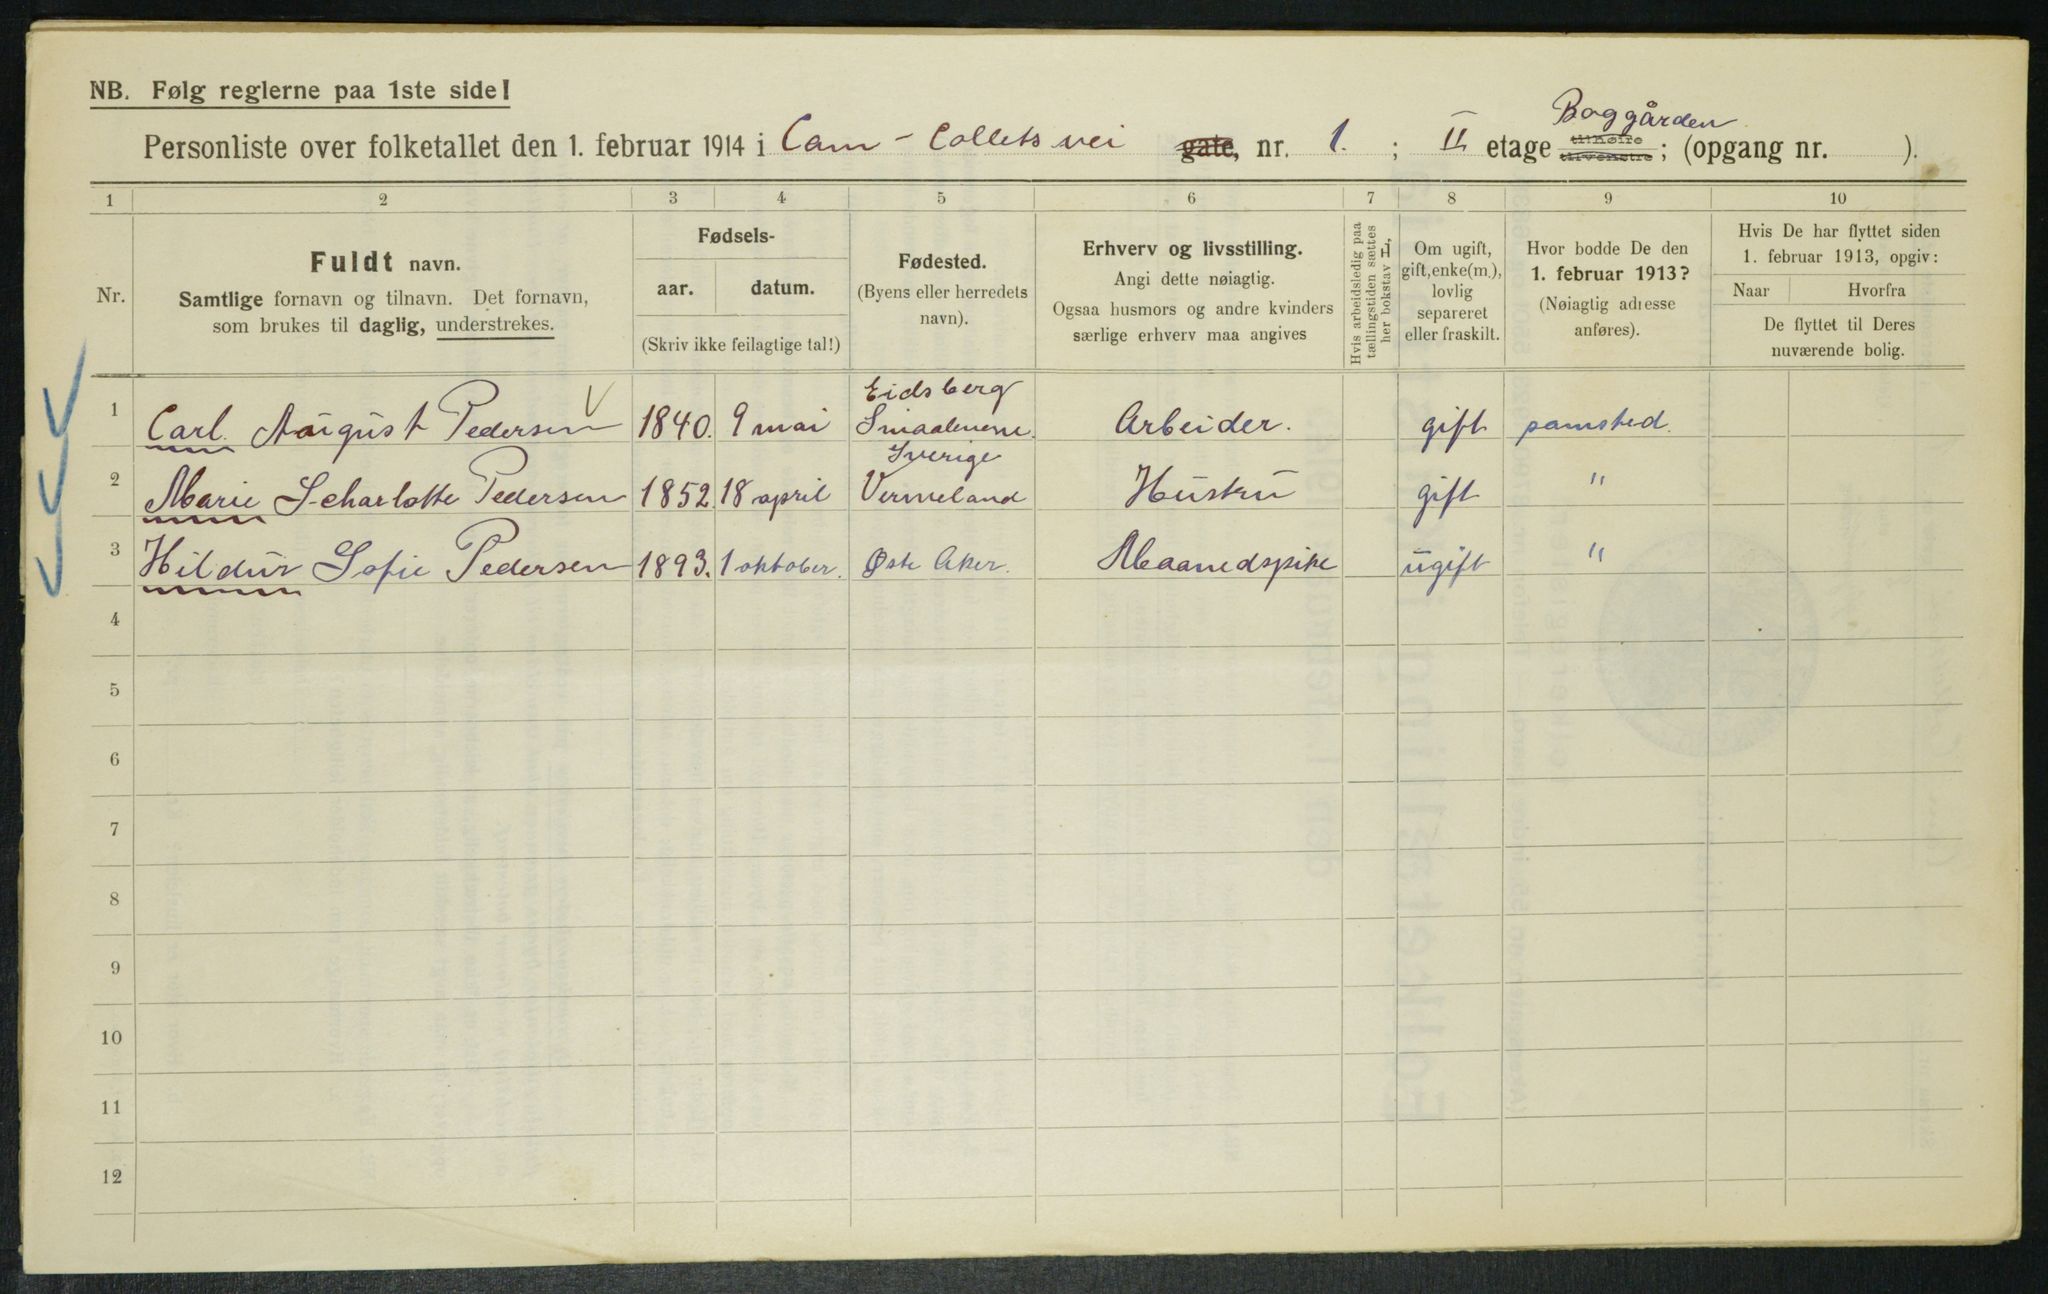 NB. Følg reglerne paa 1ste side!
Personliste over folketallet den 1. februar 1914 i Cam - Collets vei gate, nr. 1. ; II etage Baggården tilhøire tilvenstre ; (opgang nr. ).
1 2 3 4 5 6 7 8 9 10
Nr.
Fuldt navn.
Samtlige fornavn og tilnavn. Det fornavn,
som brukes til daglig, understrekes.
Fødsels-
aar. datum.
(Skriv ikke feilagtige tal!)
Fødested.
(Byens eller herredets
navn).
Erhverv og livsstilling.
Angi dette nøiagtig.
Ogsaa husmors og andre kvinders
særlige erhverv maa angives
Hvis arbeidsledig paa
tællingstiden sættes
her bokstav H,
Om ugift,
gift, enke(m.),
lovlig
separeret
eller fraskilt.
Hvor bodde De den
1. februar 1913?
(Nøiagtig adresse
anføres).
Hvis De har flyttet siden
1. februar 1913, opgiv:
Naar Hvorfra
De flyttet til Deres
nuværende bolig.
1 Carl. August Pedersen 1840. 9 mai Eidsberg Smaalenene. Arbeider. gift samsted.
2 Marie Scharlotte Pedersen 1852. 18 april Sverige Vermeland Hustru gift "
3 Hildur Sofie Pedersen 1893. 1 oktober. Øste Aker. Maanedspike ugift "
4
5
6
7
8
9
10
11
12